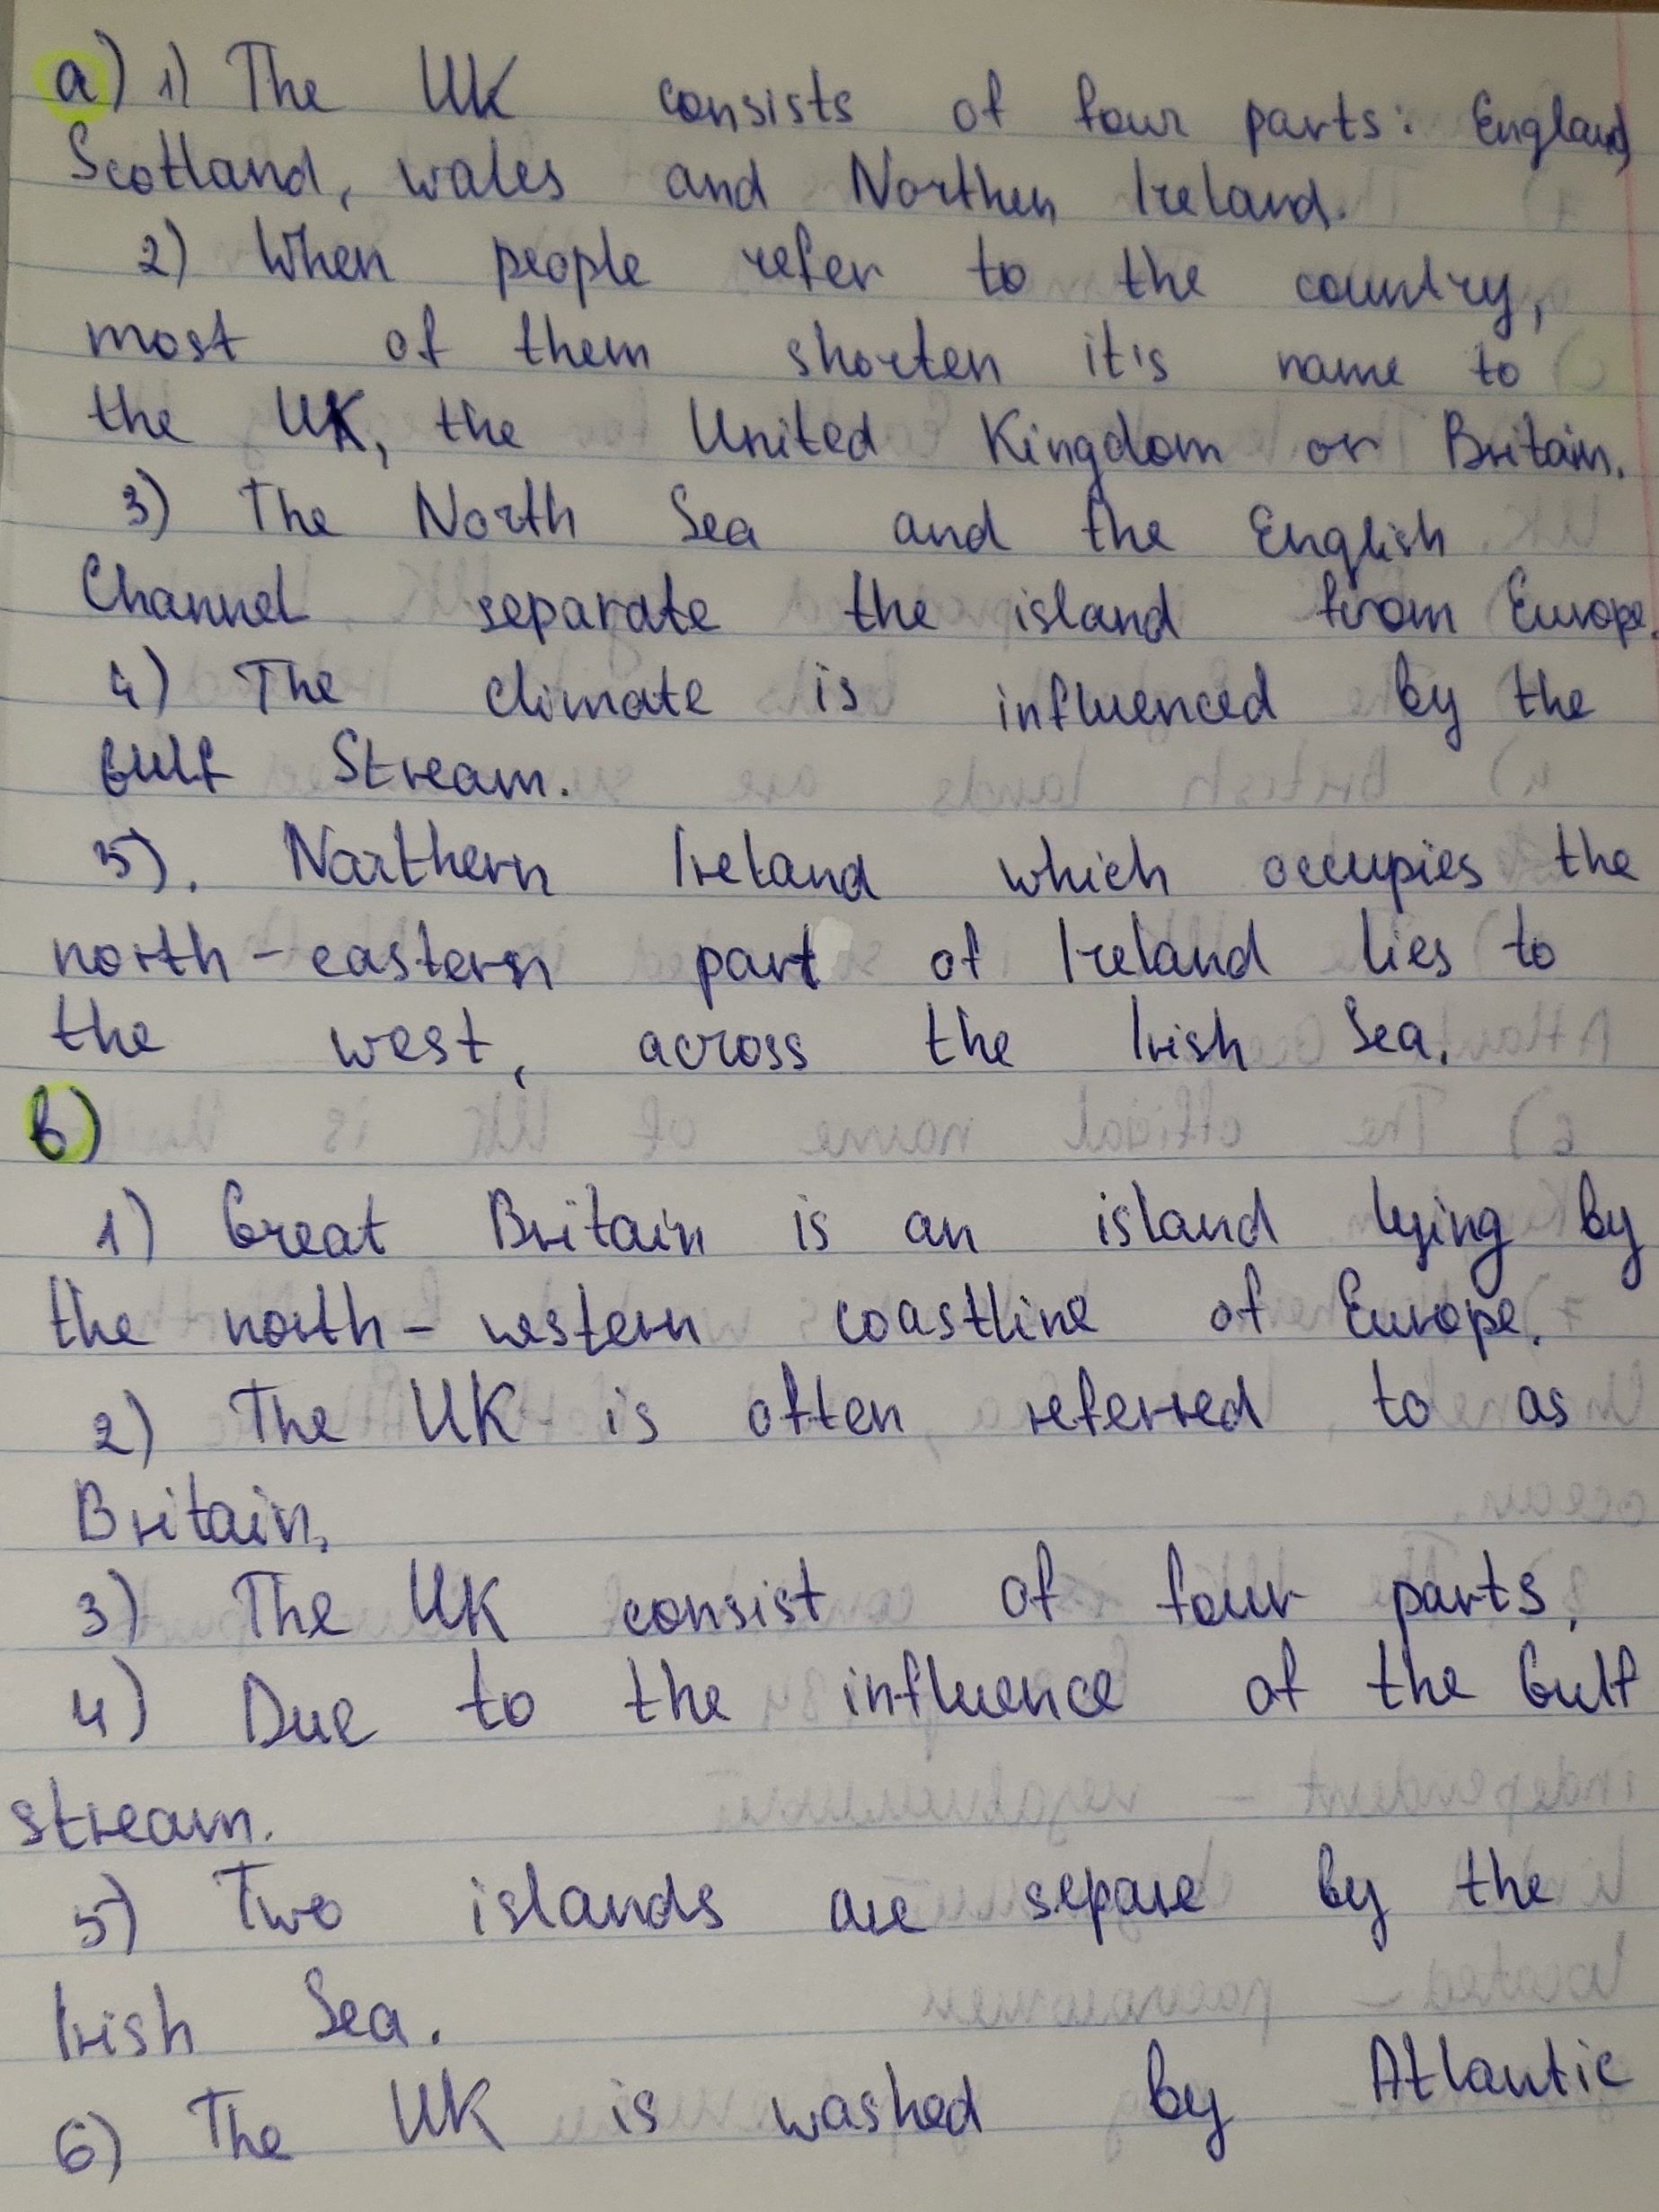 a) 1) The UK consists of four parts: England,
Scotland, wales and Northen Ireland.
2) When people refer to the country,
most of them shorten it's name to
the UK, the United Kingdom or Britain.
3) The North Sea and the English
Channel separate the island from Europe.
4) The climate is influenced by the
Gulf Stream.
5). Northern Ireland which occupies the
north-eastern part of Ireland lies to
the west, across the Irish Sea.
b)
1) Great Britain is an island lying by
the north-western coastline of Europe.
2) The UK is often referred to as
Britain.
3) The UK consist of four parts.
4) Due to the influence of the Gulf
stream.
5) Two islands are separe by the
Irish Sea.
6) The UK is washed by Atlantic